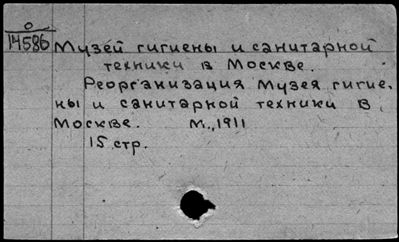 О
14586
Музей гигиены и санитарной
техники в Москве.
Реорганизация Музея гигие-
ны и санитарной техники в
Москве. М., 1911
15 стр.